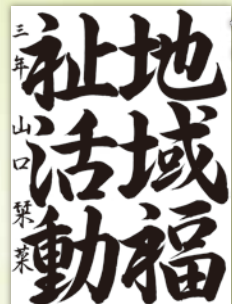 地域福
祉活動
三年 山口 栞菜